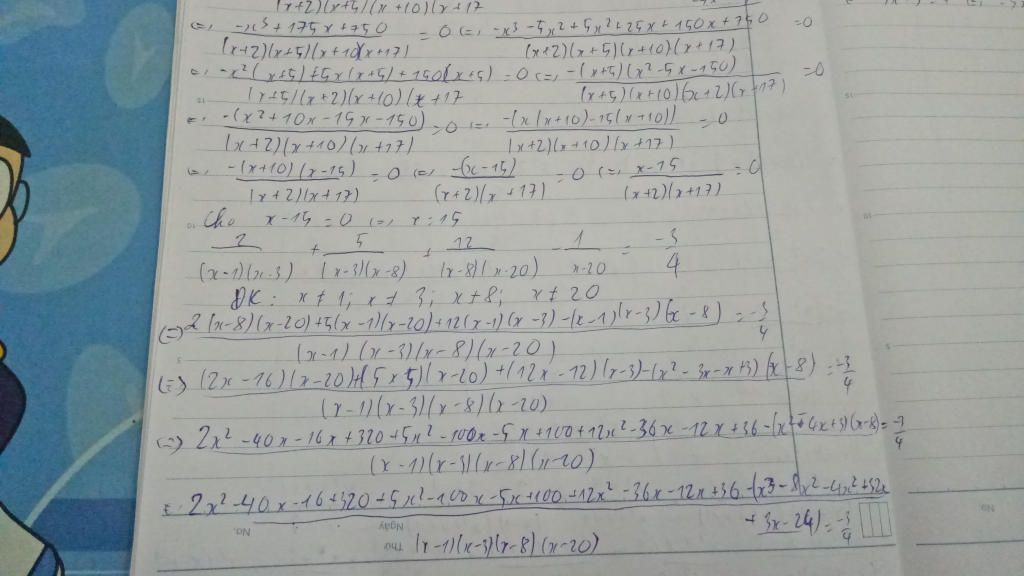 (x+2)(x+5)(x+10)(x+17
(=) -x³+175x+750 / (x+2)(x+5)(x+10)(x+17) = 0 (=) -x³-5x²+5x²+25x+150x+750 / (x+2)(x+5)(x+10)(x+17) =0
(=) -x²(x+5)+5x(x+5)+150(x+5) / (x+5)(x+2)(x+10)(x+17 =0 (=) -(x+5)(x²-5x-150) / (x+5)(x+10)(x+2)(x+17) =0
(=) -(x²+10x-15x-150) / (x+2)(x+10)(x+17) =0 (=) -(x(x+10)-15(x+10)) / (x+2)(x+10)(x+17) =0
(=) -(x+10)(x-15) / (x+2)(x+17) =0 (=) -(x-15) / (x+2)(x+17) =0 (=) x-15 / (x+2)(x+17) =0
Cho x-15=0 (=) x=15
2 / (x-1)(x-3) + 5 / (x-3)(x-8) + 12 / (x-8)(x-20) - 1 / x-20 = -3 / 4
ĐK: x≠1; x≠3; x≠8; x≠20
(=) 2(x-8)(x-20)+5(x-1)(x-20)+12(x-1)(x-3)-(x-1)(x-3)(x-8) / (x-1)(x-3)(x-8)(x-20) = -3 / 4
(=) (2x-16)(x-20)+(5x5)(x-20)+(12x-12)(x-3)-(x²-3x-x+3)(x-8) / (x-1)(x-3)(x-8)(x-20) = -3 / 4
(=) 2x²-40x-16x+320+5x²-100x-5x+100+12x²-36x-12x+36-(x²-4x+3)(x-8) / (x-1)(x-3)(x-8)(x-20) = -3 / 4
= 2x²-40x-16+320+5x²-100x-5x+100+12x²-36x-12x+36-(x³-8x²-4x²+32x
+3x-24) / (x-1)(x-3)(x-8)(x-20) = -3 / 4
No.
Ngày
Thứ
No